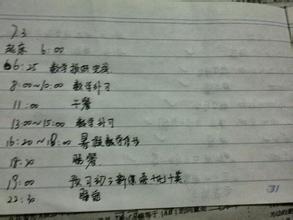 7.3
起床 6:00
6:25 数学
8:00~10:00 数学补习
11:00 午餐
13:00~15:00 数学补习
16:20~18:00 暑假
18:30 晚餐
19:00 预习初二新
22:30 睡觉
31